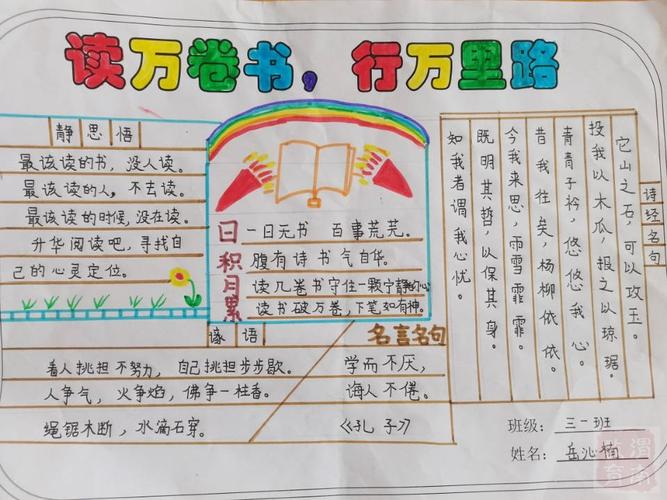 读万卷书，行万里路
静思悟
最该读的书，没人读。
最该读的人，不去读。
最该读的时候，没在读。
升华阅读吧，寻找自
己的心灵定位。
日积月累
一日无书 百事荒芜。
腹有诗书气自华。
读几卷书守住一颗宁静的心
读书破万卷，下笔如有神。
诗经名句
它山之石，可以攻玉。
投我以木瓜，报之以琼琚。
青青子衿，悠悠我心。
昔我往矣，杨柳依依。
今我来思，雨雪霏霏。
既明其哲，以保其身。
知我者谓我心忧。
谚语
看人挑担不努力，自己挑担步步歇。
人争气，火争焰，佛争一柱香。
绳锯木断，水滴石穿。
名言名句
学而不厌，
诲人不倦。
《孔子》
班级：三一班
姓名：岳沁楠